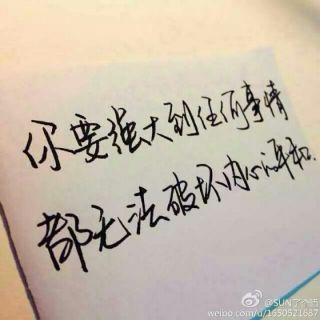 你要强大到任何事情
都无法破坏内心的平和.
@SUN了个巧
weibo.com/u/1650521687